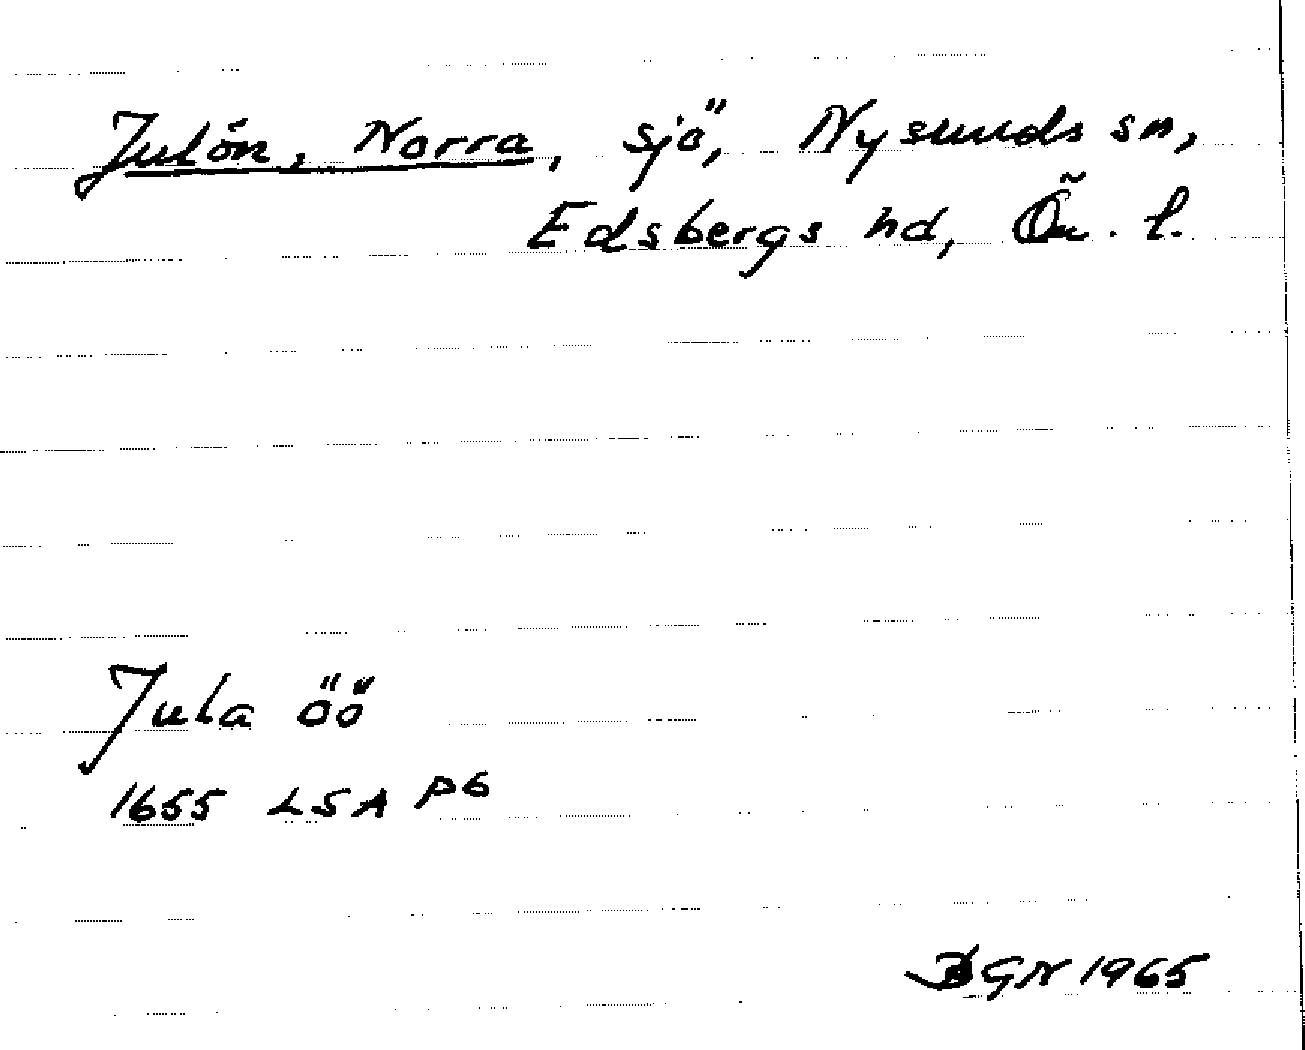 Julön, Norra, sjö, Nysunds sn,
Edsbergs hd, Ör. l.
Jula öö
1655 LSA P6
GN 1965